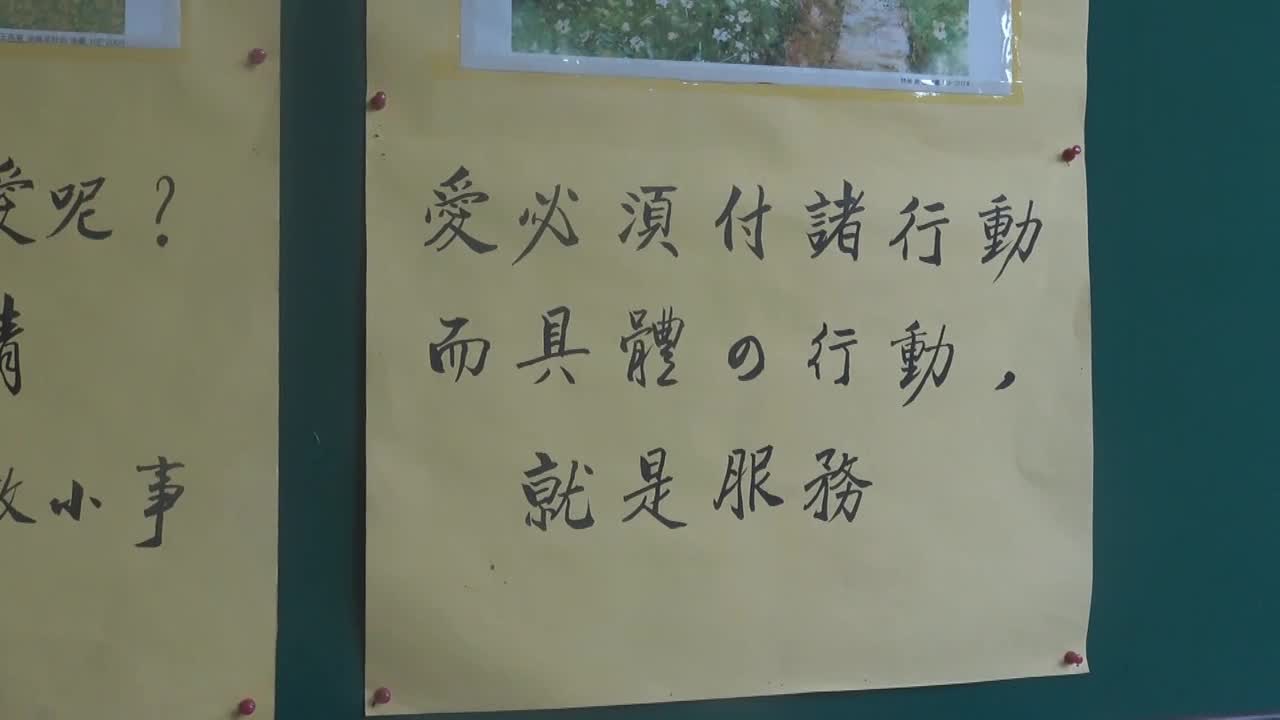 愛呢？
情
小事
愛必須付諸行動
而具體の行動，
就是服務